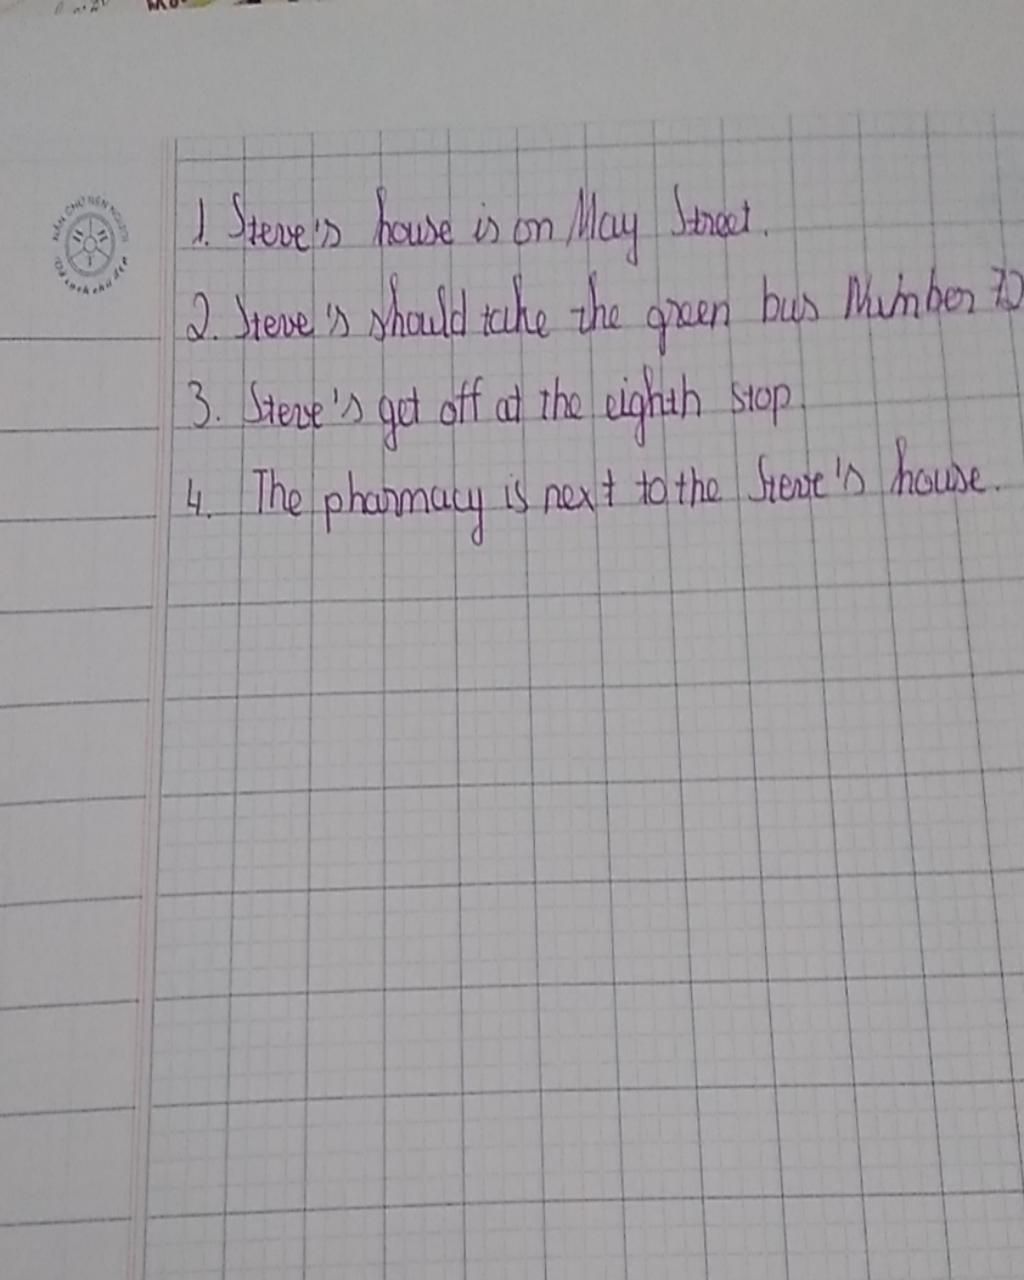 1. Steve's house is on May Street.
2. Steve's should take the green bus Number 70
3. Steve's get off at the eighth stop.
4. The pharmacy is next to the Steve's house.